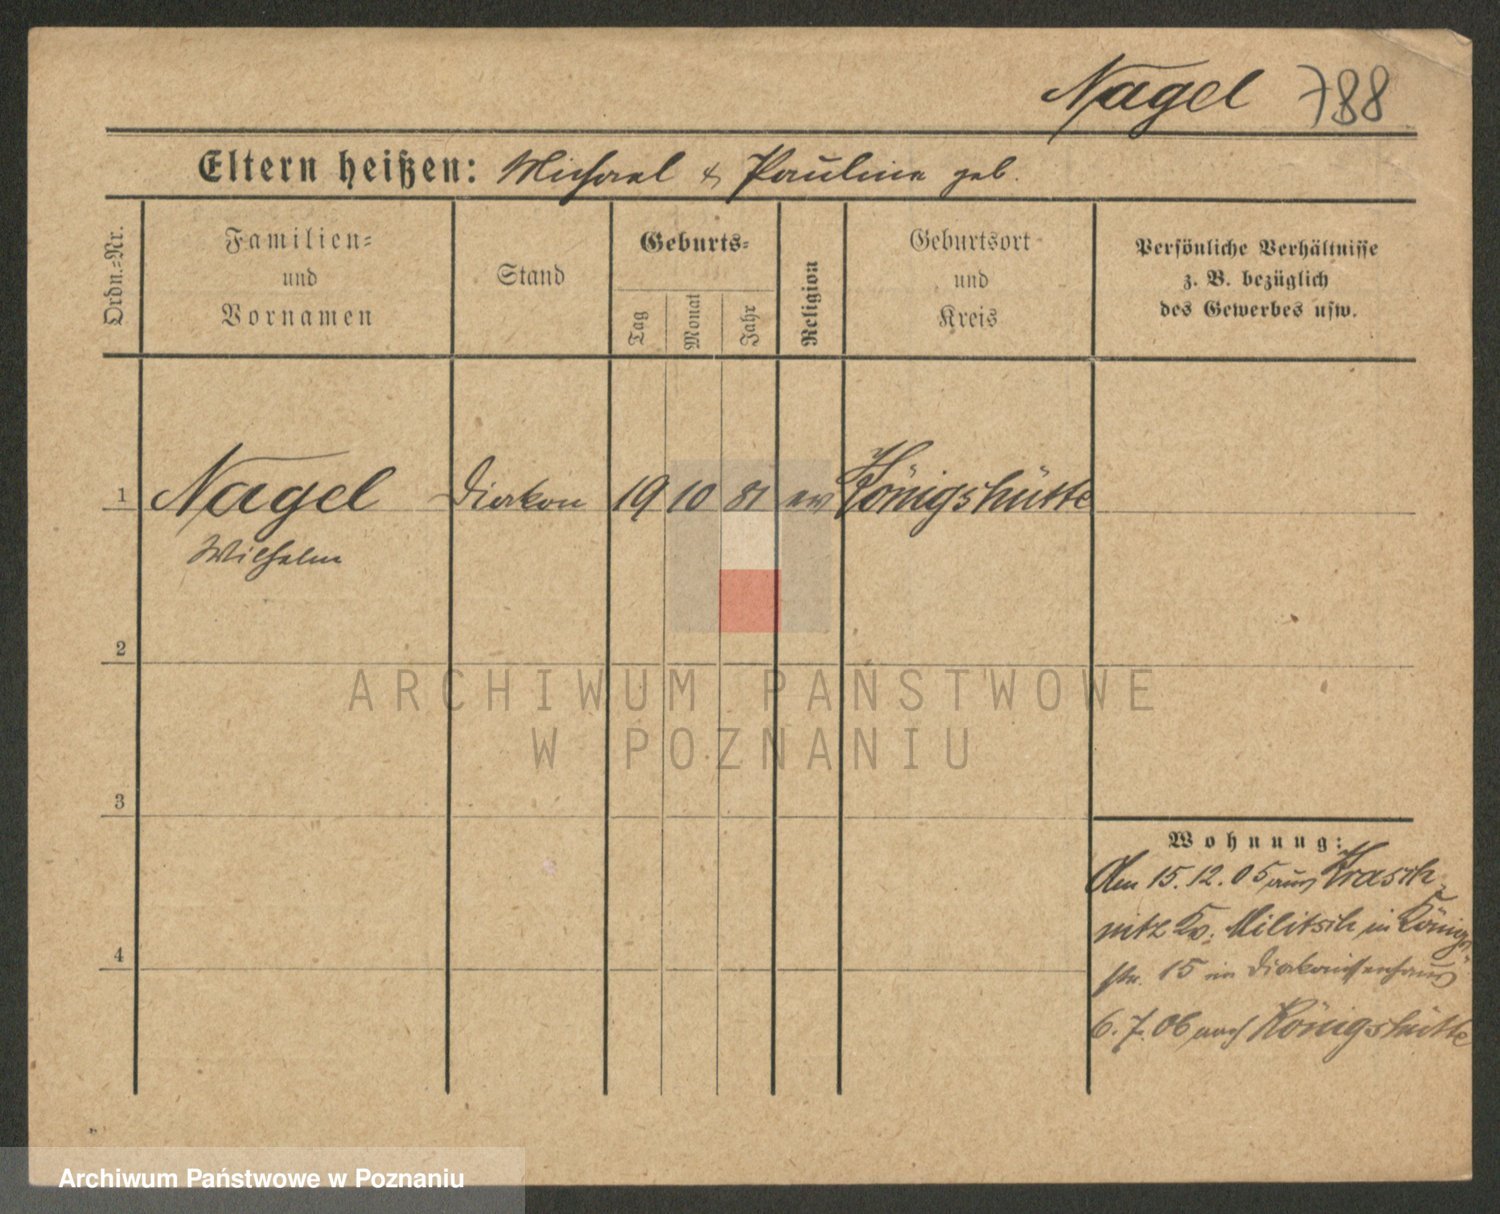 Nagel 788
Eltern heißen: Michael & Pauline geb.
Ordn.-Nr.
Familien-
und
Vornamen
Stand
Geburts-
Tag
Monat
Jahr
Religion
Geburtsort
und
Kreis
Persönliche Verhältnisse
z. B. bezüglich
des Gewerbes usw.
1 Nagel Diakon 19 10 81 ev Königshütte
Wilhelm
2
3
4
Wohnung:
Am 15.12.05 aus Krasch-
nitz Kr. Militsch in Königs-
str. 15 in Diakonissenhaus
6.7.06 nach Königshütte
ARCHIWUM PAŃSTWOWE
W POZNANIU
Archiwum Państwowe w Poznaniu